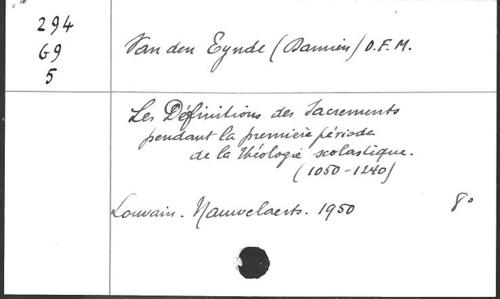 294
G9
5
Van den Eynde (Damien) O.F.M.
Les Définitions des Sacrements
pendant la première période
de la théologie scolastique.
(1050-1240)
Louvain. Nauwelaerts. 1950 8°